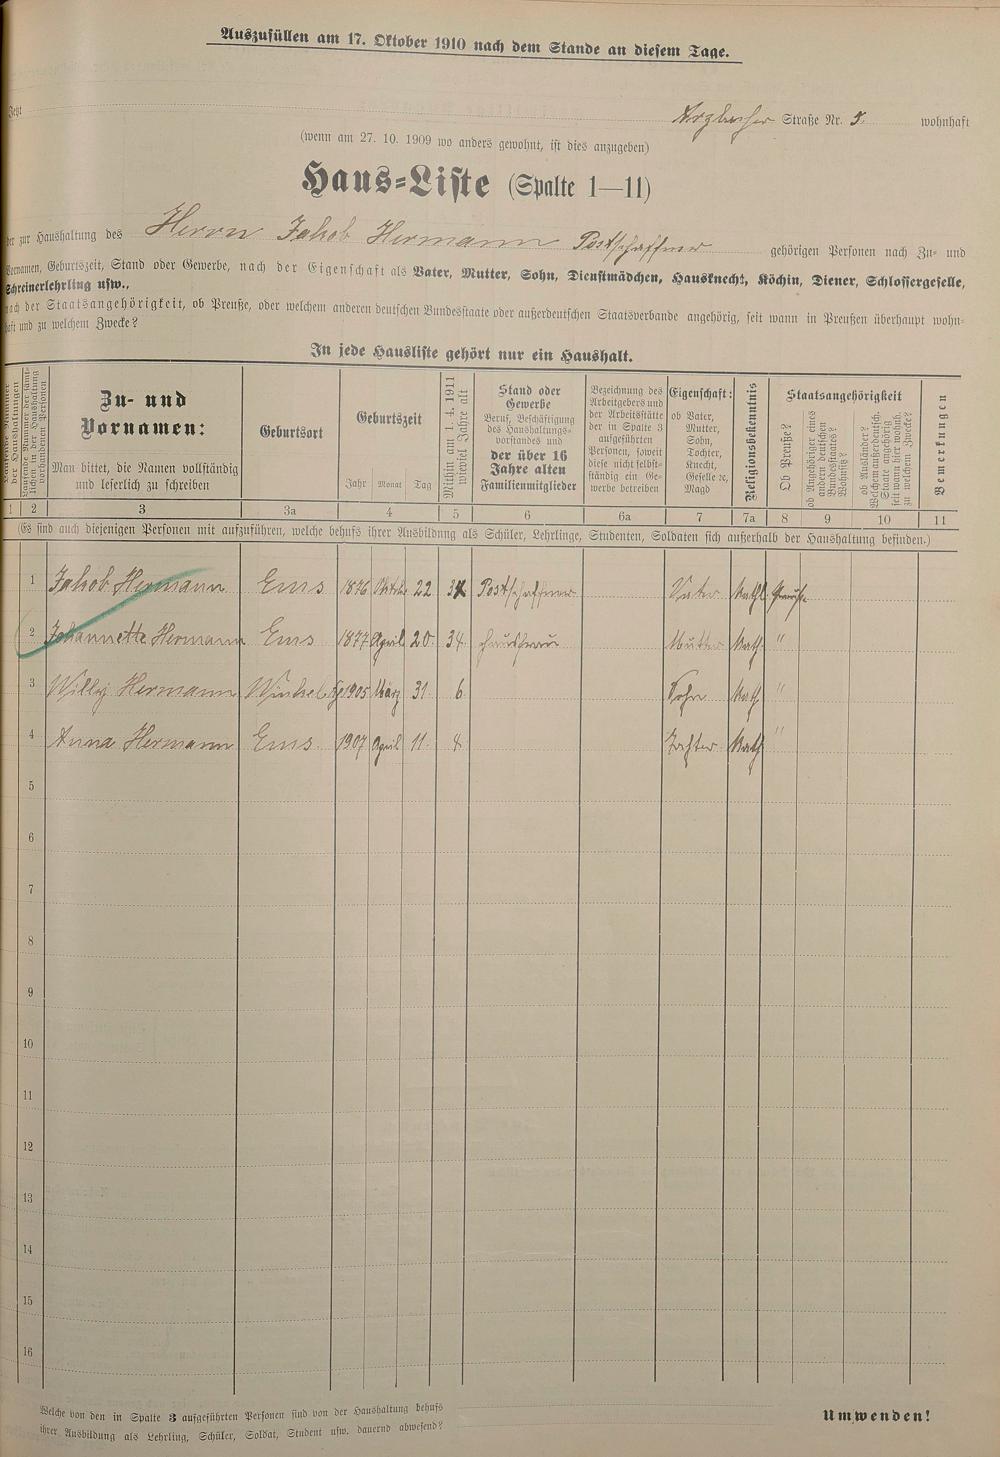 Auszufüllen am 17. Oktober 1910 nach dem Stande an diesem Tage.
Jetzt Arzbacher Straße Nr. 5. wohnhaft
(wenn am 27. 10. 1909 wo anders gewohnt, ist dies anzugeben)
Haus-Liste (Spalte 1—11)
der zur Haushaltung des Herrn Jakob Hermann Postschaffner gehörigen Personen nach Zu- und
Vornamen, Geburtszeit, Stand oder Gewerbe, nach der Eigenschaft als Vater, Mutter, Sohn, Dienstmädchen, Hausknecht, Köchin, Diener, Schlossergeselle,
Schreinerlehrling usw.,
nach der Staatsangehörigkeit, ob Preuße, oder welchem anderen deutschen Bundesstaate oder außerdeutschen Staatsverbande angehörig, seit wann in Preußen überhaupt wohn-
haft und zu welchem Zwecke?
In jede Hausliste gehört nur ein Haushalt.
Laufende Nummer der Haushaltungen
Laufende Nummer der sämt-
lichen in der Haushaltung
vorhandenen Personen
Zu- und
Vornamen:
Man bittet, die Namen vollständig
und leserlich zu schreiben
Geburtsort
Geburtszeit
Jahr Monat Tag
Mithin am 1. 4. 1911
wieviel Jahre alt
Stand oder
Gewerbe
Beruf, Beschäftigung
des Haushaltungs-
vorstandes und
der über 16
Jahre alten
Familienmitglieder
Bezeichnung des
Arbeitgebers und
der Arbeitsstätte
der in Spalte 3
aufgeführten
Personen, soweit
diese nicht selbst-
ständig ein Ge-
werbe betreiben
Eigenschaft:
ob Vater,
Mutter,
Sohn,
Tochter,
Knecht,
Geselle ꝛc,
Magd
Religionsbekenntnis
Staatsangehörigkeit
Ob Preuße?
ob Angehöriger eines
andern deutschen
Bundesstaates?
Wohnsitz?
ob Ausländer?
Welchem außerdeutsch.
Staate angehörig
seit wann hier wohnh.
zu welchem Zwecke?
Bemerkungen
1 2 3 3a 4 5 6 6a 7 7a 8 9 10 11
(Es sind auch diejenigen Personen mit aufzuführen, welche behufs ihrer Ausbildung als Schüler, Lehrlinge, Studenten, Soldaten sich außerhalb der Haushaltung befinden.)
1 Jakob Hermann Ems 1876 Oktob. 22 34 Postschaffner Vater Kathl. Preuße
2 Johannette Hermann Ems 1877 April 20. 34. Hausfrau Mutter Kath. "
3 Willy Hermann Winkel 1905 März 31. 6. Sohn Kath. "
4 Anna Hermann Ems 1907 April 11. 4. Tochter Kath "
5
6
7
8
9
10
11
12
13
14
15
16
Welche von den in Spalte 3 aufgeführten Personen sind von der Haushaltung behufs
ihrer Ausbildung als Lehrling, Schüler, Soldat, Student usw. dauernd abwesend?
Umwenden!